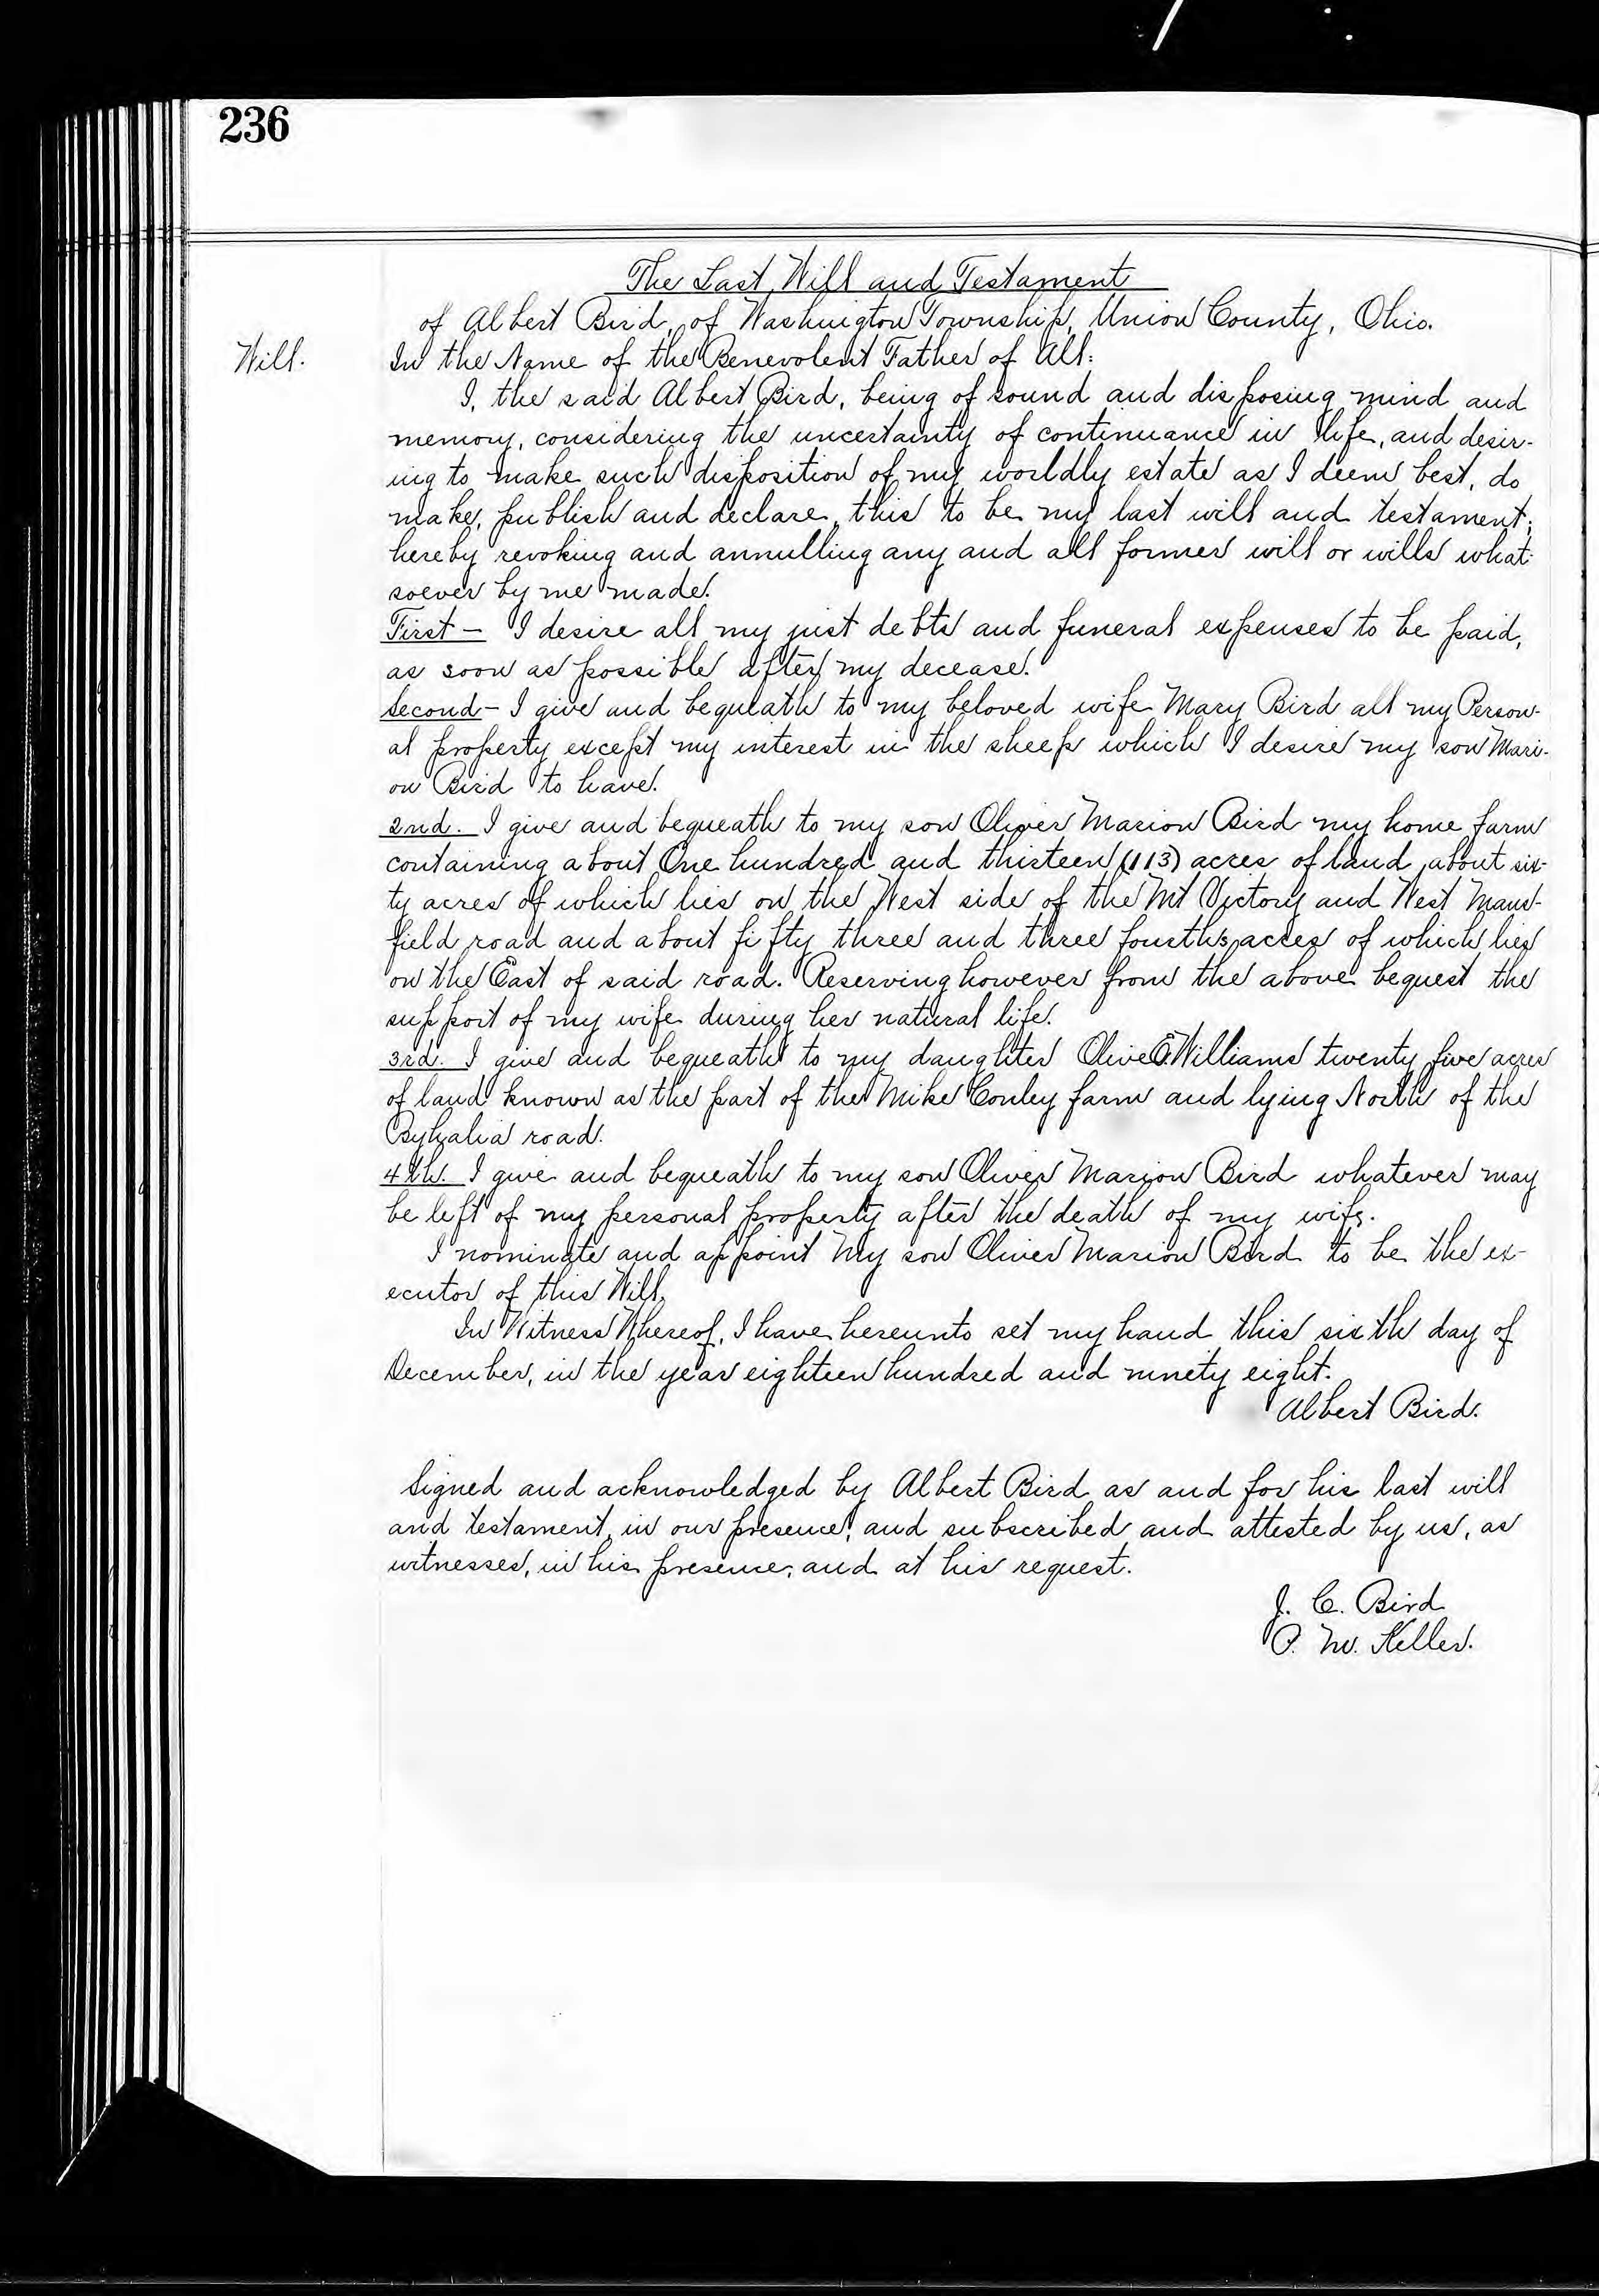 236
The Last Will and Testament
of Albert Bird, of Washington Township, Union County, Ohio.
Will.
In the Name of the Benevolent Father of All:
I, the said Albert Bird, being of sound and disposing mind and
memory, considering the uncertainty of continuance in life, and desir-
ing to make such disposition of my worldly estate as I deem best, do
make, publish and declare, this to be my last will and testament;
hereby revoking and annulling any and all former will or wills what-
soever by me made.
First - I desire all my just debts and funeral expenses to be paid,
as soon as possible after my decease.
Second - I give and bequlath to my beloved wife Mary Bird all my Person-
al property except my interest in the sheep which I desire my son Mari-
on Bird to have.
2nd. I give and bequeath to my son Oliver Marion Bird my home farm
containing about One hundred and thirteen (113) acres of land, about six-
ty acres of which lies on the West side of the Mt Victory and West Mans-
field road and about fifty three and three fourths acres of which lies
on the East of said road. Reserving however from the above bequest the
support of my wife during her natural life.
3rd. I give and bequeath to my daughter Olive O. Williams twenty five acres
of land known as the part of the Mike Conley farm and lying North of the
Byhalia road.
4th. I give and bequeath to my son Oliver Marion Bird whatever may
be left of my personal property after the death of my wife.
I nominate and appoint My son Oliver Marion Bird to be the ex-
ecutor of this Will.
In Witness Whereof, I have hereunto set my hand this sixth day of
December, in the year eighteen hundred and ninety eight.
Albert Bird.
Signed and acknowledged by Albert Bird as and for his last will
and testament, in our presence, and subscribed and attested by us, as
witnesses, in his presence, and at his request.
J. C. Bird
P. W. Keller.